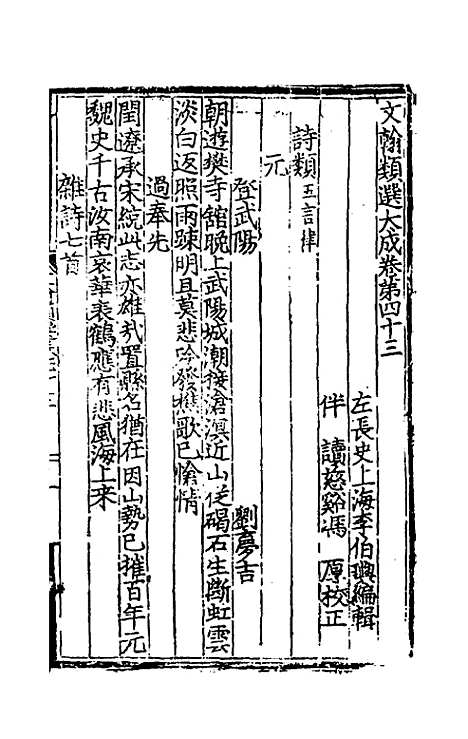 文翰類選大成卷第四十三
左長史上海李伯璵編輯
伴讀慈谿馮厚校正
詩類五言律
元
登武陽 劉夢吉
朝遊樊子舘晚上武陽城潮接滄溟近山從碣石生斷虹雲
淡白返照雨踈明且莫悲吟發樵歌已愴情
過奉先
閏遼承宋統此志亦雄㢤置縣名猶在因山勢已摧百年元
魏史千古汝南哀華表鶴應有悲風海上来
雜詩七首